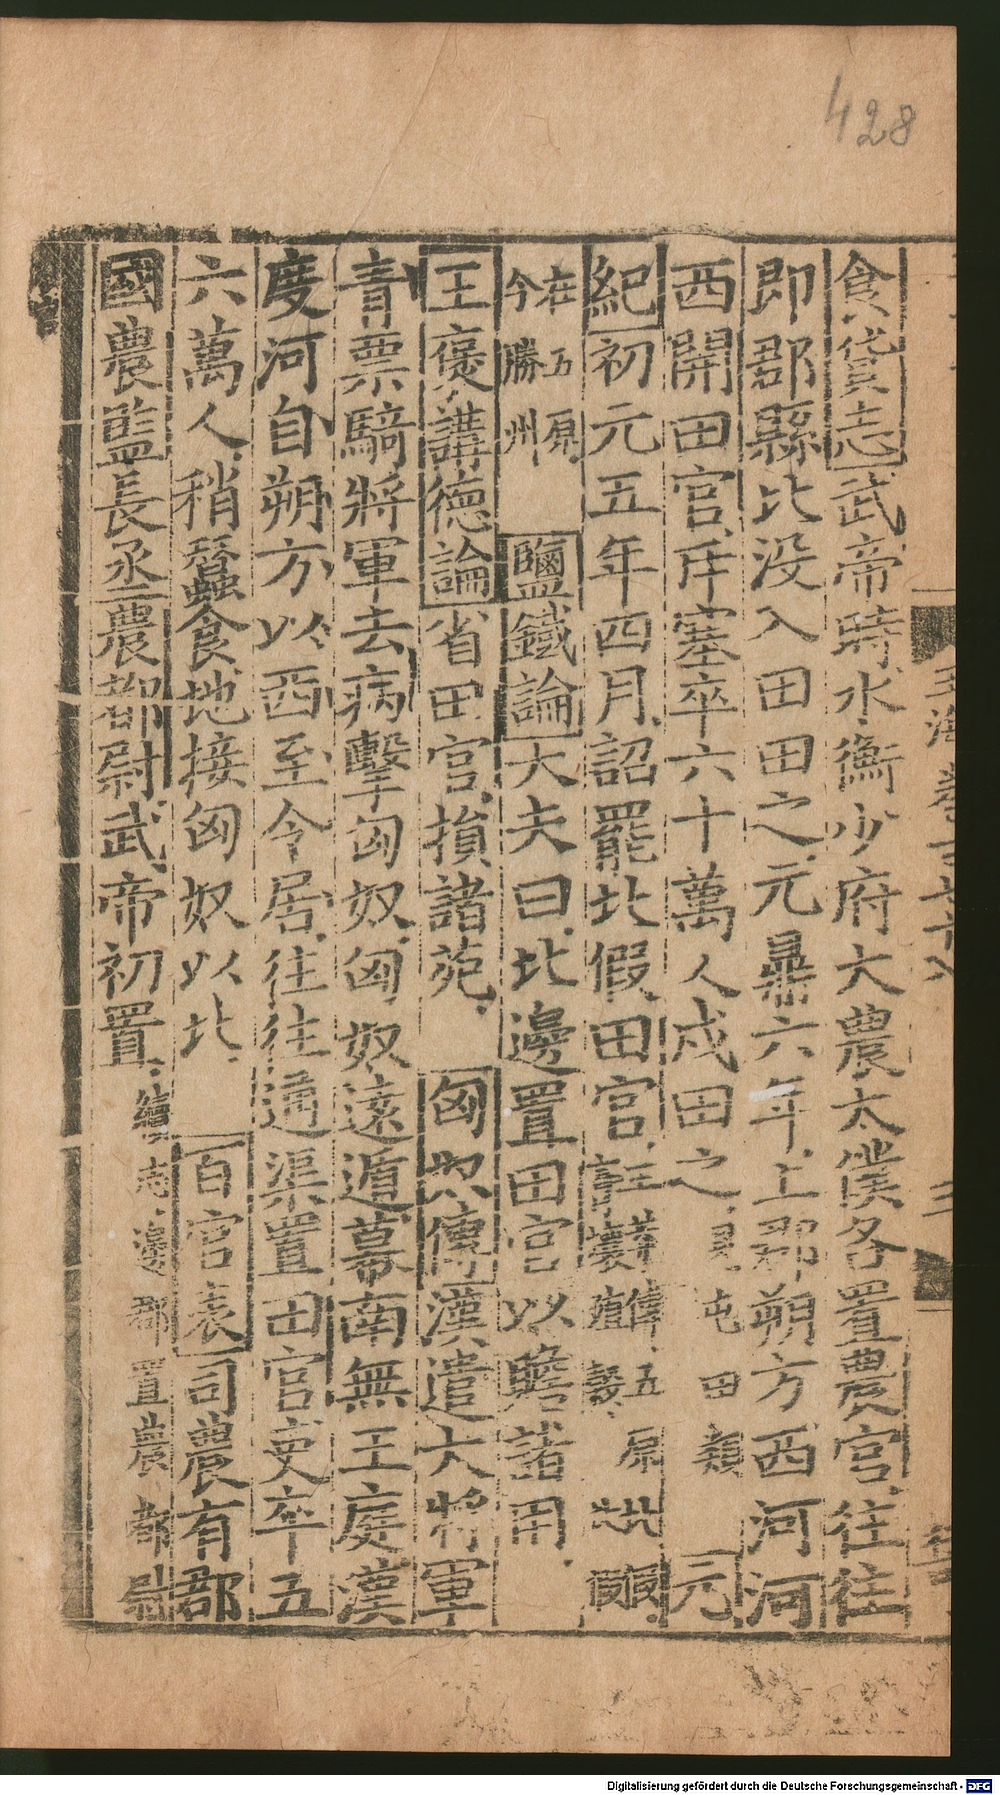 428
食貨志武帝時水衡少府大農太僕各置農官往往
即郡縣比没入田田之元鼎六年上郡朔方西河河
西開田官斥塞卒六十萬人戍田之見屯田類元
紀初元五年四月詔罷北假田官註 五原
在五原
今勝州鹽鐵論大夫曰北邊置田官以贍諸用
王襃講德論省田官損諸苑匈奴傳漢遣大將軍
青票騎將軍去病擊匈奴匈奴遠遁幕南無王庭漢
度河自朔方以西至令居往往通渠置田官吏卒五
六萬人稍蠶食地接匈奴以北百官表司農有郡
國農監長丞農都尉武帝初置續志邊郡置農都尉
玉海 卷百七十八
Digitalisierung gefördert durch die Deutsche Forschungsgemeinschaft - DFG